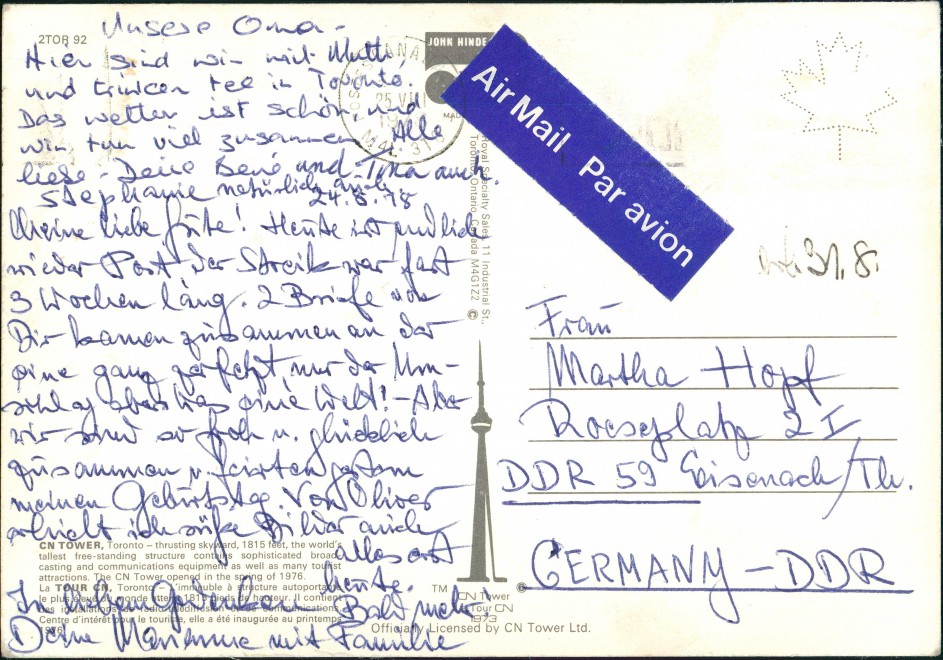 2TOR 92
Unsere Oma -
Hier sind wir mit Mutti,
und trinken tee in Toronto.
Das wetter ist schön, und
wir tun viel zusammen. Alle
liebe - Deine Bene und Tina auch.
Stephanie natürlich auch.
24.8.78
Meine liebe gute! Heute ist endlich
wieder Post der Streik war fast
3 Wochen lang. 2 Briefe von
Dir kamen zusammen an der
eine ganz zerfetzt nur der Um-
schlag aber was eine Welt! - Aber
wir sind so froh u. glücklich
zusammen u. feierten gestern
meinen Geburtstag. Von Oliver
erhielt ich süße Bilder auch
alles erst
heute.
In Gedenken
Bald mehr,
Deine Marianne mit Familie
CN TOWER, Toronto – thrusting skyward, 1815 feet, the world's
tallest free-standing structure contains sophisticated broad-
casting and communications equipment as well as many tourist
attractions. The CN Tower opened in the spring of 1976.
La TOUR CN, Toronto – l'immeuble à structure autoportante
le plus du monde 1815 pieds de hauteur. Il contient
des installations de radiodiffusion communications.
Centre d'intérêt pour le touriste, elle a été inaugurée au printemps
1976.
JOHN HINDE
CANADA
25 VIII
M4L 3T0
Royal Specialty Sales, 11 Industrial St.,
Toronto, Ontario, Canada M4G1Z2 ©
Air Mail Par avion
31.8.
Frau
Martha Hopf
Roeseplatz 2 I
DDR 59 Eisenach/Th.
GERMANY – DDR
TM CN Tower
La Tour CN ©
1973
Officially Licensed by CN Tower Ltd.